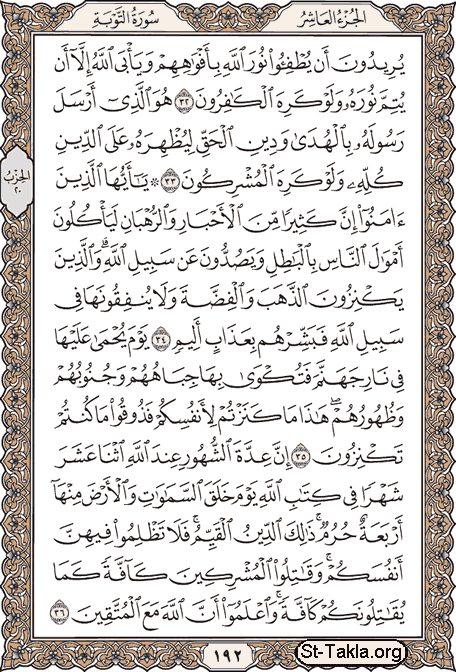 الجزء العاشر
سورة التوبة
يُرِيدُونَ أَن يُطْفِـُٔوا۟ نُورَ ٱللَّهِ بِأَفْوَٰهِهِمْ وَيَأْبَى ٱللَّهُ إِلَّآ أَن
يُتِمَّ نُورَهُۥ وَلَوْ كَرِهَ ٱلْكَٰفِرُونَ ٣٢ هُوَ ٱلَّذِىٓ أَرْسَلَ
رَسُولَهُۥ بِٱلْهُدَىٰ وَدِينِ ٱلْحَقِّ لِيُظْهِرَهُۥ عَلَى ٱلدِّينِ
كُلِّهِۦ وَلَوْ كَرِهَ ٱلْمُشْرِكُونَ ٣٣ ۞ يَٰٓأَيُّهَا ٱلَّذِينَ
ءَامَنُوٓا۟ إِنَّ كَثِيرًا مِّنَ ٱلْأَحْبَارِ وَٱلرُّهْبَانِ لَيَأْكُلُونَ
أَمْوَٰلَ ٱلنَّاسِ بِٱلْبَٰطِلِ وَيَصُدُّونَ عَن سَبِيلِ ٱللَّهِ ۗ وَٱلَّذِينَ
يَكْنِزُونَ ٱلذَّهَبَ وَٱلْفِضَّةَ وَلَا يُنفِقُونَهَا فِى
سَبِيلِ ٱللَّهِ فَبَشِّرْهُم بِعَذَابٍ أَلِيمٍ ٣٤ يَوْمَ يُحْمَىٰ عَلَيْهَا
فِى نَارِ جَهَنَّمَ فَتُكْوَىٰ بِهَا جِبَاهُهُمْ وَجُنُوبُهُمْ
وَظُهُورُهُمْ ۖ هَٰذَا مَا كَنَزْتُمْ لِأَنفُسِكُمْ فَذُوقُوا۟ مَا كُنتُمْ
تَكْنِزُونَ ٣٥ إِنَّ عِدَّةَ ٱلشُّهُورِ عِندَ ٱللَّهِ ٱثْنَا عَشَرَ
شَهْرًا فِى كِتَٰبِ ٱللَّهِ يَوْمَ خَلَقَ ٱلسَّمَٰوَٰتِ وَٱلْأَرْضَ مِنْهَآ
أَرْبَعَةٌ حُرُمٌ ۚ ذَٰلِكَ ٱلدِّينُ ٱلْقَيِّمُ ۚ فَلَا تَظْلِمُوا۟ فِيهِنَّ
أَنفُسَكُمْ ۚ وَقَٰتِلُوا۟ ٱلْمُشْرِكِينَ كَآفَّةً كَمَا
يُقَٰتِلُونَكُمْ كَآفَّةً ۚ وَٱعْلَمُوٓا۟ أَنَّ ٱللَّهَ مَعَ ٱلْمُتَّقِينَ ٣٦
الحزب
٢٠
١٩٢
St-Takla.org